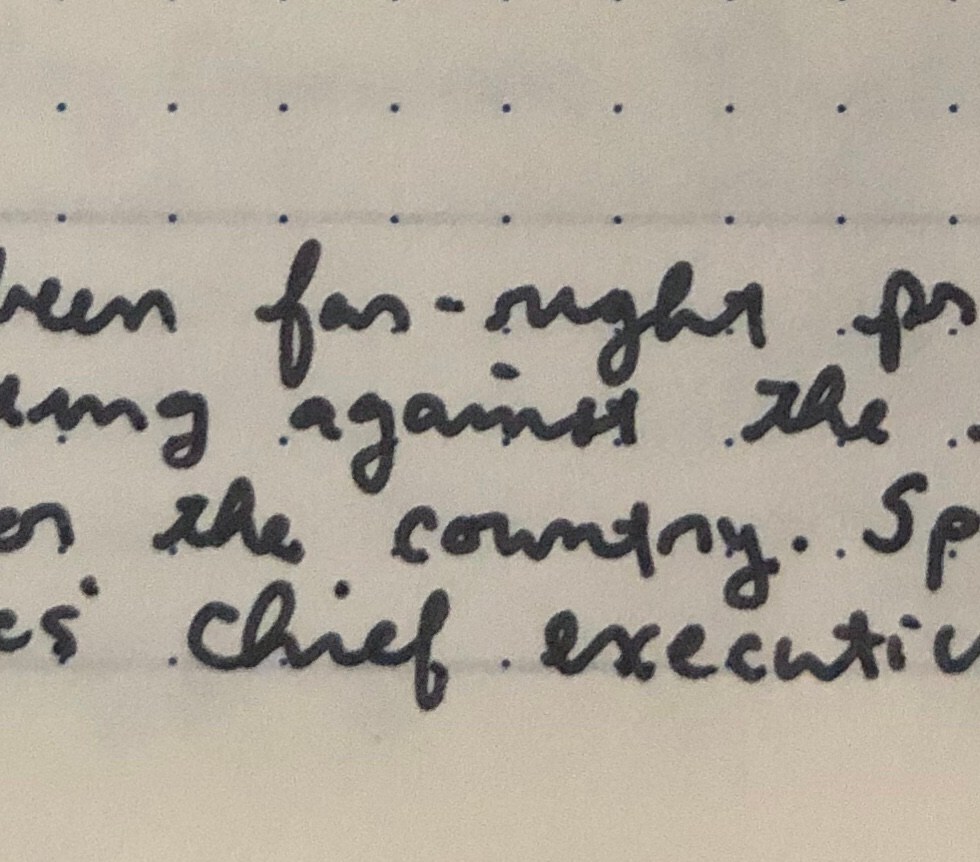 been far-right pr
ing against the
or the country. Sp
es' chief executiv